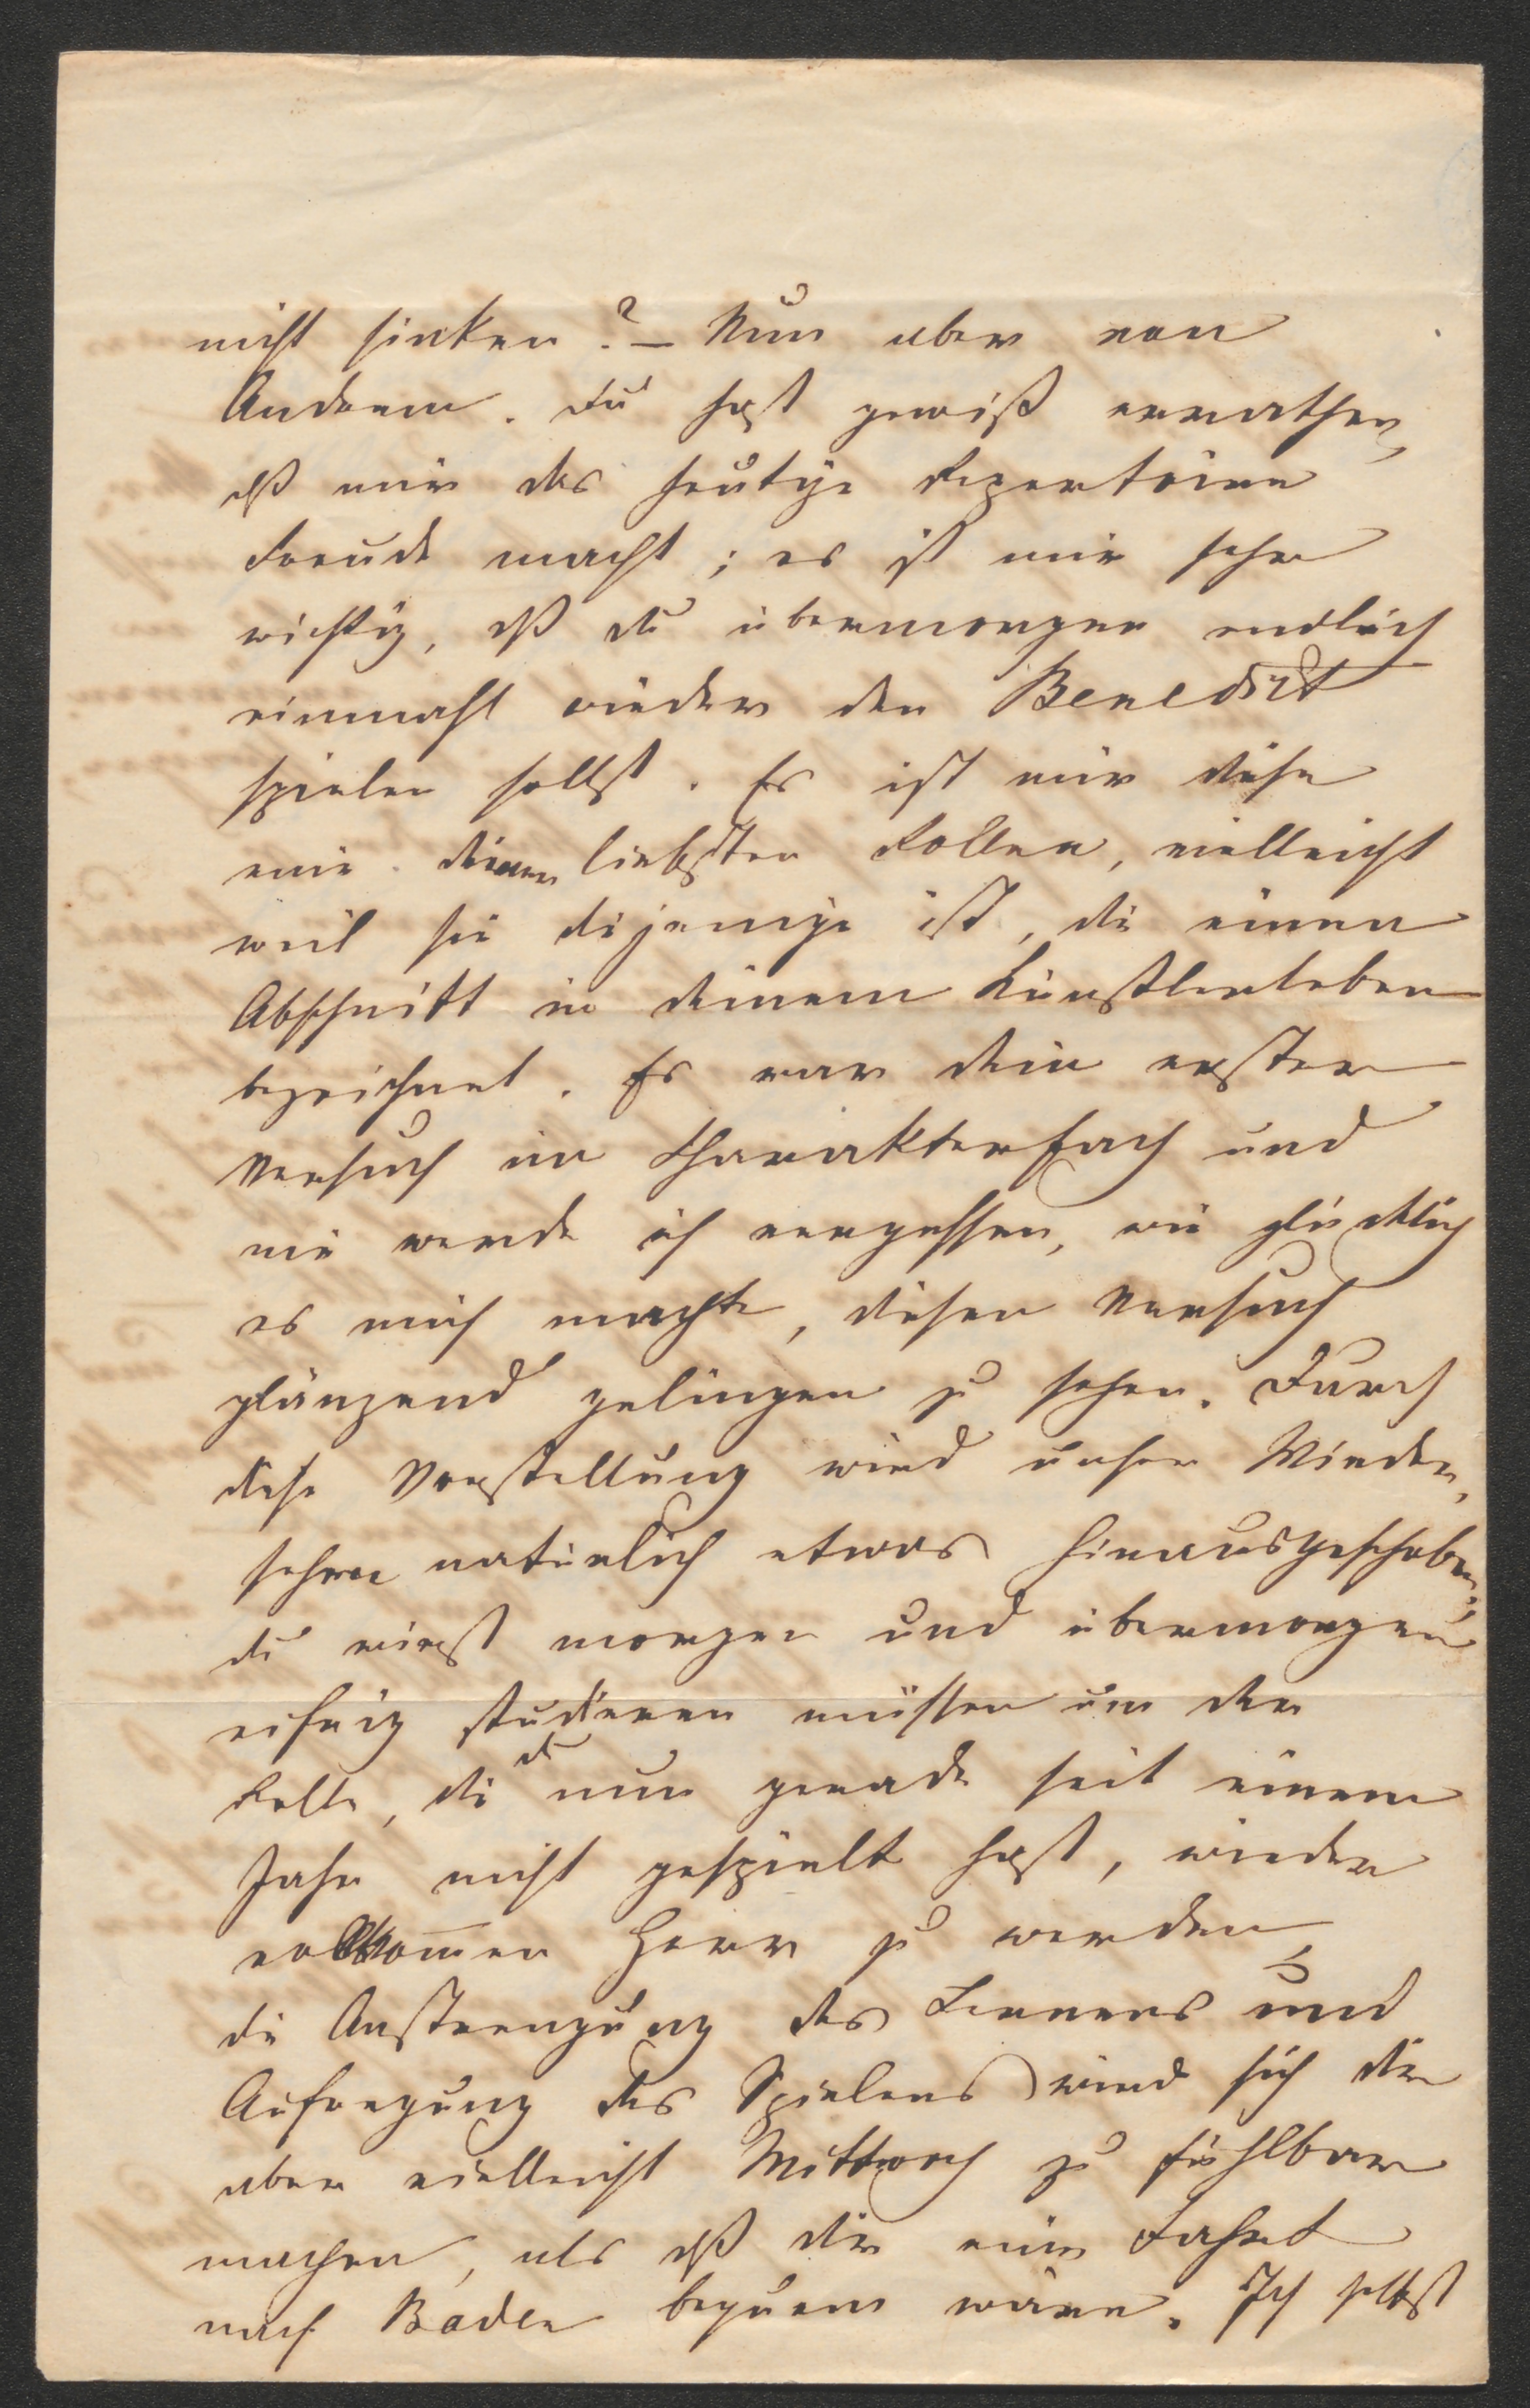 nicht sinken? – Nun aber von
Anderem. Du hast gewiß errathen,
dß mir das heutige Repertoire
Freude macht; es ist mir sehr
wichtig, dß du übermorgen endlich
einmahl wieder den Benedict
spielen sollst. Es ist mir diese
eine deiner liebsten Rollen, vielleicht
weil sie diejenige ist, die einen
Abschnitt in deinem Künstlerleben
bezeichnet. Es war dein erster
Versuch im Charakterfach und
nie werde ich vergessen, wie glücklich
es mich machte, diesen Versuch
glänzend gelingen zu sehen. Durch
diese Vorstellung wird unser Wieder-
sehen natürlich etwas hinausgeschoben;
du wirst morgen und übermorgen
eifrig studieren müssen um der
Rolle, die du nun gerade seit einem
Jahr nicht gespielt hast, wieder
vollkomen Herr zu werden,
die Anstrengung des Lernens und
Aufregung des Spielens wird sich dir
aber vielleicht Mittwoch zu fühlbar
machen, als dß dir eine Fahrt
nach Baden bequem wäre. Ich selbst